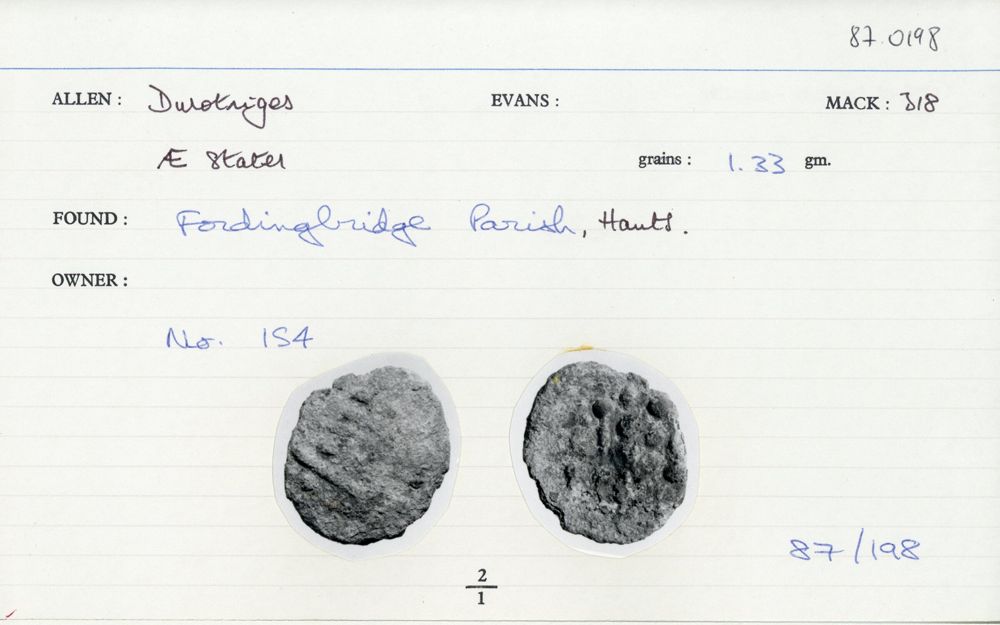 87.0198
ALLEN : Durotriges EVANS : MACK : 318
Æ Stater grains : 1.33 gm.
FOUND : Fordingbridge Parish, Hants.
OWNER :
No. 154
87/198
2
1